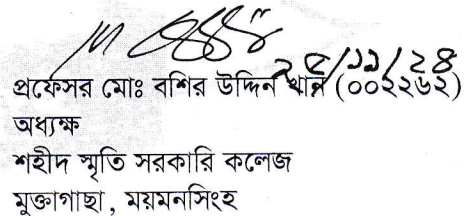 ২৫/১১/২৪
প্রফেসর মোঃ বশির উদ্দিন খান (০০২২৬২)
অধ্যক্ষ
শহীদ স্মৃতি সরকারি কলেজ
মুক্তাগাছা, ময়মনসিংহ